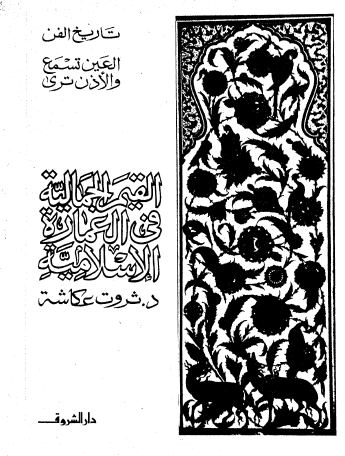 تاريخ الفن
العين تسمع
والأذن ترى
القيم الجمالية
فى العمارة
الإسلامية
د. ثروت عكاشة
دار الشروق